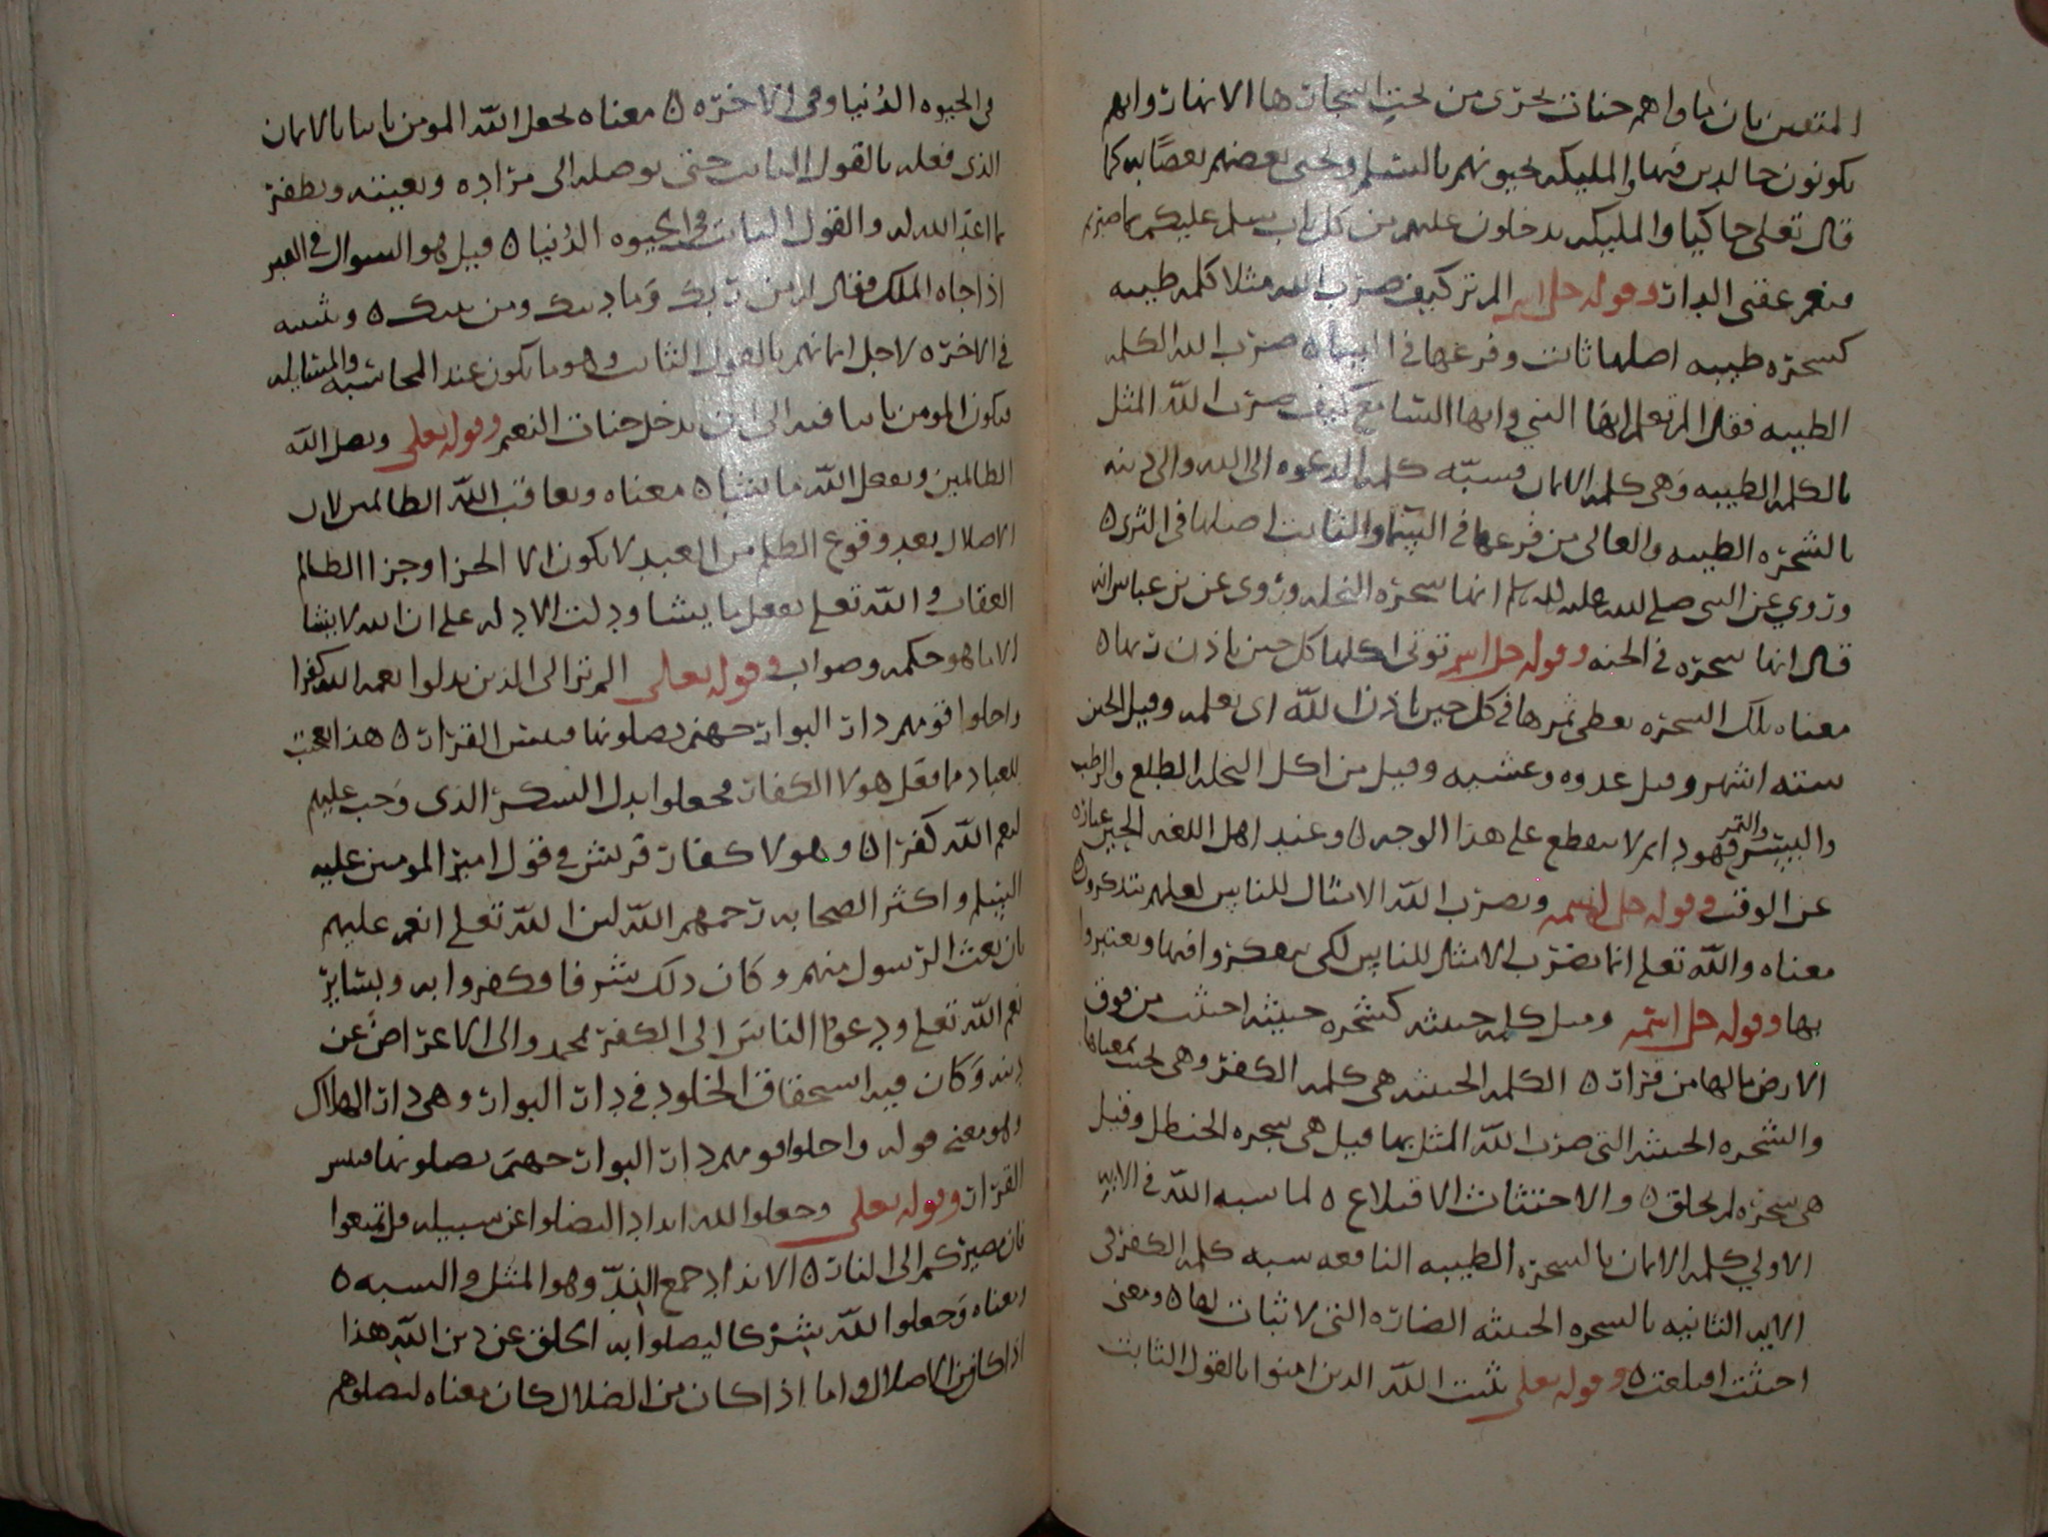 المتقين بان ماواهم جنات تجري من تحت اشجارها الانهار وانهم
يكونون خالدين فيها والمليكه يحيونهم بالسلم ويحيى بعضهم بعضا به كما
قال تعلى حاكيا والمليكه يدخلون عليهم من كل باب سلم عليكم بما صبرتم
فنعم عقبى الدار وقوله جل اسمه الم تر كيف ضرب الله مثلا كلمه طيبه
كشجره طيبه اصلها ثابت وفرعها في السماء ضرب الله الكلمه
الطيبه فقال الم تعلم ايها النبي وايها السامع كيف ضرب الله المثل
بالكلمه الطيبه وهي كلمه الايمان فشبه كلمه الدعوه الى الله والى دينه
بالشجره الطيبه والعالى من فرعها في السما والثابت اصلها في الثرى
وروي عن النبي صلى الله عليه واله وسلم انها شجره النخله وروى عن بن عباس انه
قال انها شجره في الجنه وقوله جل اسمه توتى اكلها كل حين باذن ربها
معناه تلك الشجره يعطى ثمرها في كل حين باذن الله اى بعلمه وقيل الحين
سته اشهر وقيل غدوه وعشيه وقيل من اكل النخله الطلع والرطب
والبسر والتمر فهو دايم لا ينقطع على هذا الوجه وعند اهل اللغه الحين عباره
عن الوقت وقوله جل اسمه ويضرب الله الامثال للناس لعلهم يتذكرون
معناه والله تعلى انما يضرب الامثال للناس لكى يتفكروا فيها ويعتبروا
بها وقوله جل اسمه ومثل كلمه خبيثه كشجره خبيثه اجتثت من فوق
الارض مالها من قرار الكلمه الخبيثه هى كلمه الكفر وهى تحت معناها
والشجره الخبيثه التى ضرب الله المثل بها قيل هى شجره الحنظل وقيل
هى شجره لم تخلق والاجتثاث الاقتلاع لما شبه الله في الايه
الاولي كلمه الايمان بالشجره الطيبه النافعه شبه كلمه الكفر في
الايه الثانيه بالشجره الخبيثه الضاره التى لا ثبات لها ومعنى
اجتثت اقتلعت وقوله تعلى يثبت الله الذين امنوا بالقول الثابت
في الحيوه الدنيا وفي الاخره معناه يجعل الله المومن ثابتا بالايمان
الذى فعله بالقول الثابت حتى يوصله الى مراده ويعينه ويظفر
بما اعد الله له والقول الثابت في الحيوه الدنيا قيل هو السوال في القبر
اذا جاه الملك فقال له من ربك وما دينك ومن نبيك ويثبته
في الاخره لاجل ايمانهم بالقول الثابت وهو ما يكون عند المحاسبه والمسايله
فيكون المومن ثابتا فيه الى ان يدخل جنات النعيم وقوله تعلى ويضل الله
الظالمين ويفعل الله ما يشا معناه ويعاقب الله الظالمين لان
الاضلال بعد وقوع الظلم من العبد لا يكون الا الجزا وجزا الظالم
العقاب والله تعلى يفعل ما يشا ودلت الادله على ان الله لا يشا
الا ما هو حكمه وصواب وقوله تعالى الم تر الى الذين بدلوا نعمه الله كفرا
واحلوا قومهم دار البوار جهنم يصلونها فبيس القرار هذا تعجب
للعباد مما فعل هولا الكفار فجعلوا بدل الشكر الذى وجب عليهم
لنعم الله كفرا وهولا كفار قريش في قول امير المومنين عليه
السلم واكثر الصحابه رحمهم الله لان الله تعلى انعم عليهم
بان بعث الرسول منهم وكان ذلك شرفا فكفروا به وبساير
نعم الله تعلى ودعوا الناس الى الكفر بمحمد والى الاعراض عن
دينه وكان فيه استحقاق الخلود في دار البوار وهى دار الهلاك
وهو معنى قوله واحلوا قومهم دار البوار جهنم يصلونها فبيس
القرار وقوله تعلى وجعلوا لله اندادا ليضلوا عن سبيله قل تمتعوا
فان مصيركم الى النار الانداد جمع الند وهو المثل والشبه
ومعناه وجعلوا لله شركا ليضلوا به الخلق عن دين الله هذا
اذا كان من الاضلال واما اذا كان من الضلال كان معناه ليضلوهم